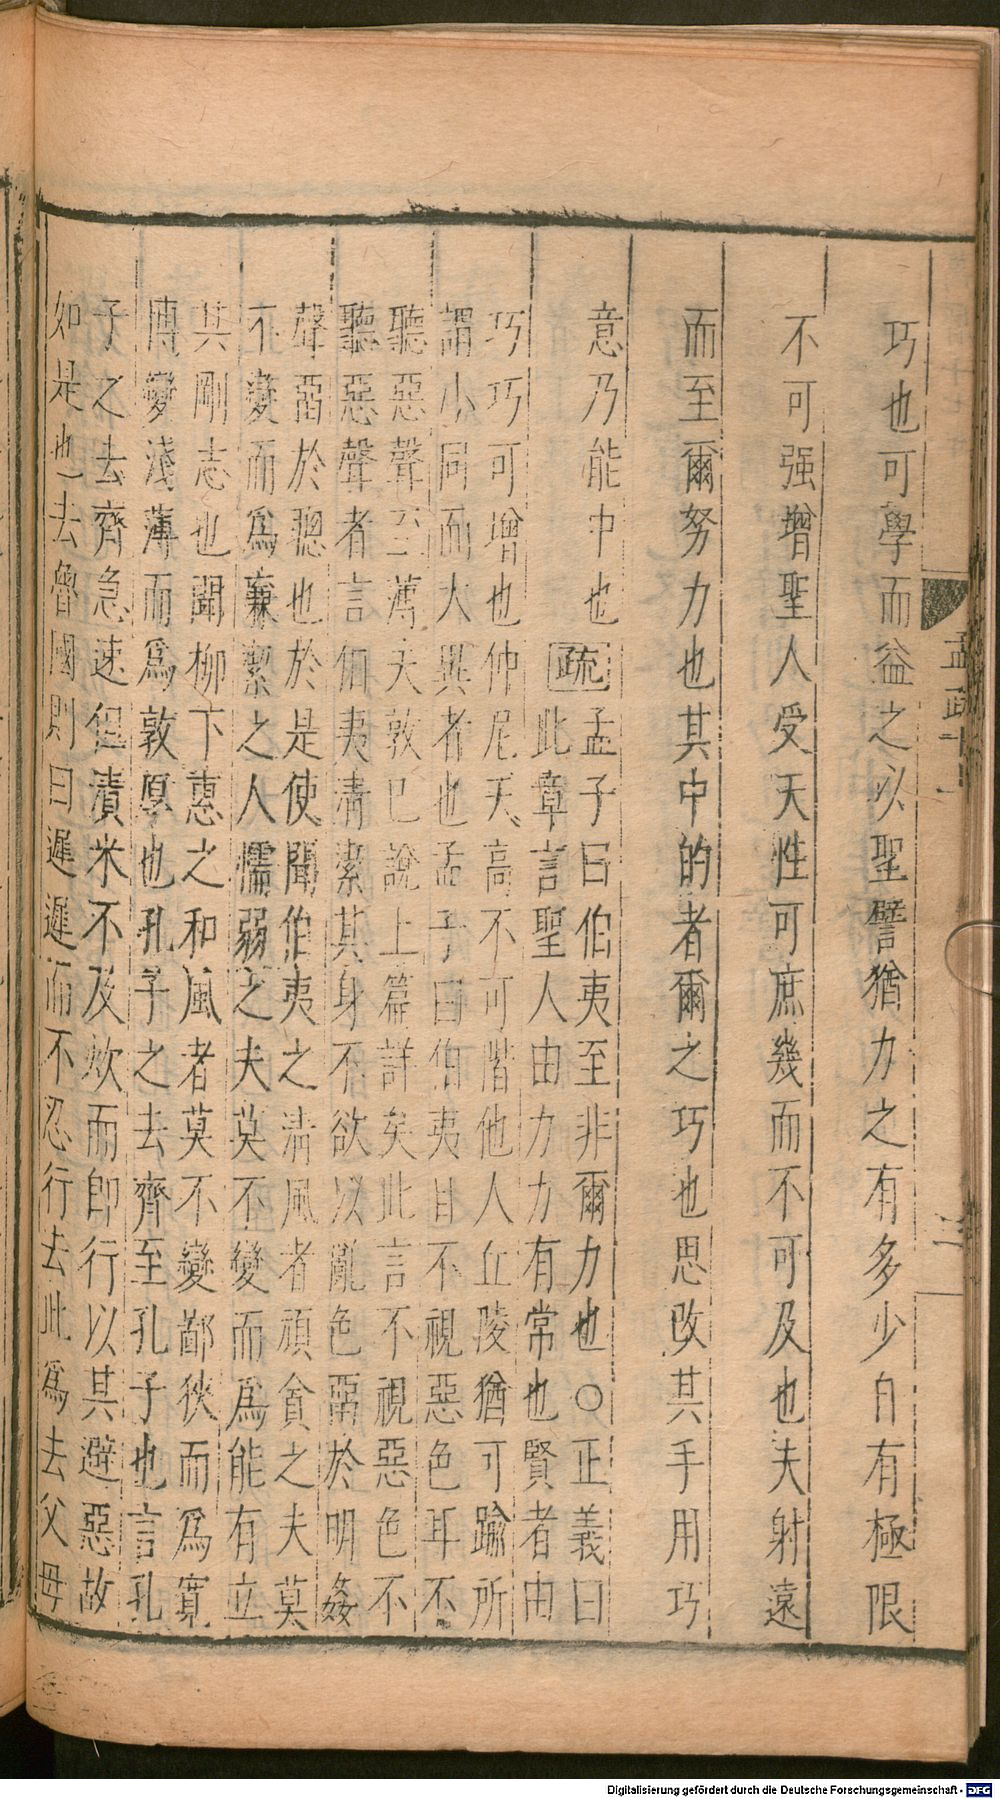 巧也可學而益之以聖譬猶力之有多少自有極限
不可强增聖人受天性可庶幾而不可及也夫射遠
而至爾努力也其中的者爾之巧也思改其手用巧
意乃能中也
疏
孟子曰伯夷至非爾力也○正義曰
此章言聖人由力力有常也賢者由
巧巧可增也仲尼天高不可階他人丘陵猶可踰所
謂小同而大異者也孟子曰伯夷目不視惡色耳不
聽惡聲至薄夫敦已說上篇詳矣此言不視惡色不
聽惡聲者言伯夷清潔其身不欲以亂色惡於明姦
聲惡於聰也於是使聞伯夷之清風者頑貪之夫莫
不變而爲亷潔之人懦弱之夫莫不變而爲能有立
其剛志也聞柳下惠之和風者莫不變鄙狹而爲寬
博變淺薄而爲敦厚也孔子之去齊至孔子也言孔
子之去齊急速但漬米不及炊而即行以其避惡故
如是也去魯國則曰遲遲而不忍行去此爲去父母
孟疏十
三
Digitalisierung gefördert durch die Deutsche Forschungsgemeinschaft - DFG